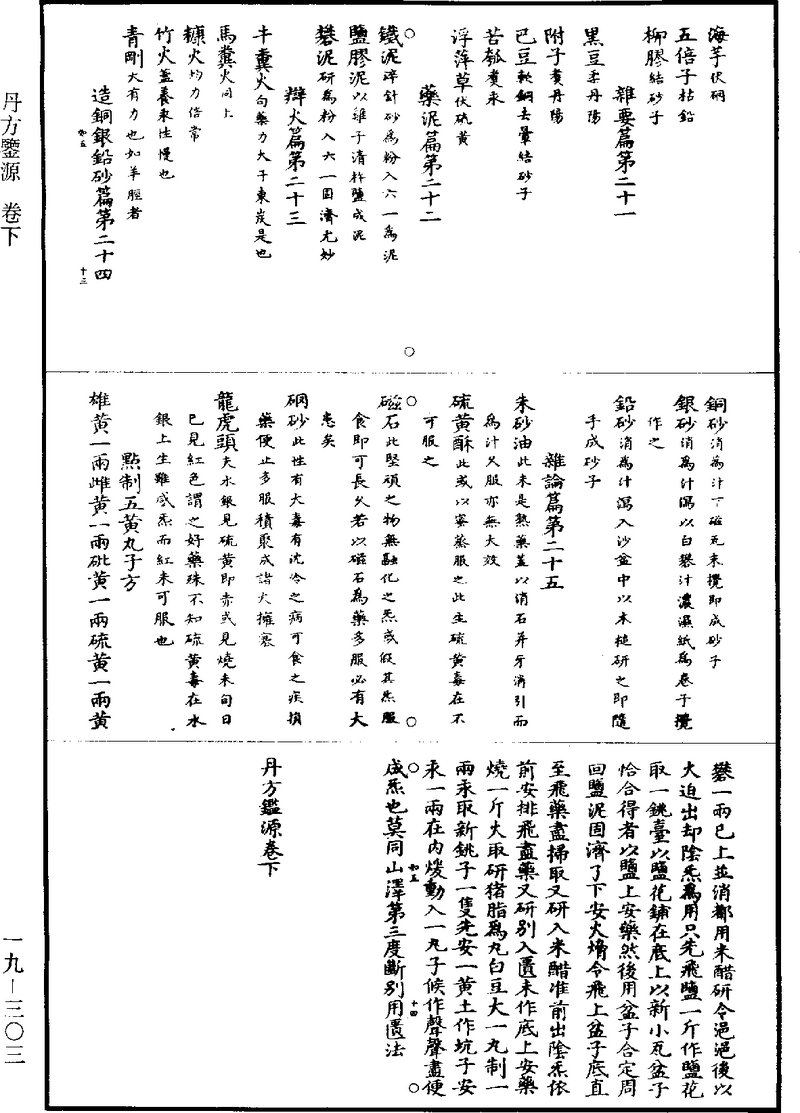 海芋伏硇
五倍子枯鉛
柳膠結砂子
雜要篇第二十一
黑豆柔丹陽
附子煮丹陽
巴豆軟銅去暈結砂子
苦瓠煮汞
浮萍草伏硫黄
藥泥篇第二十二
鐵泥碎針砂為粉入六一為泥
鹽膠泥以雞子清杵鹽成泥
礬泥研為粉入六一固濟尤妙
辯火篇第二十三
牛糞火句藥力大子東炭是也
馬糞火同上
糠火均力倍常
竹火蓋養汞性慢也
青剛大有力也如羊脛者
造銅銀鉛砂篇第二十四
如五
十三
銅砂消為汁下磁瓦末攪即成砂子
銀砂消為汁瀉以白礬汁濃濕紙為卷子攪
作之
鉛砂消為汁瀉入沙盆中以木槌研之即隨
手成砂子
雜論篇第二十五
朱砂油此未是熟藥蓋以消石并牙消引而
為汁久服亦無大效
硫黄酥此或以蜜蒸服之此生硫黄毒在不
可服之
磁石此堅頑之物無融化之炁或假其炁服
食即可長久若以磁石為藥多服必有大
患矣
硇砂此性有大毒有沈冷之病可食之疾損
藥便止多服積聚成諸火擁塞
龍虎頭夫水銀見硫黄即赤或見燒未旬日
已見紅色謂之好藥殊不知硫黄毒在水
銀上生雖感炁而紅未可服也
點制五黄丸子方
雄黄一兩雌黄一兩砒黄一兩硫黄一兩黄
礬一兩已上並消鄰用米醋研令浥浥後以
火迫出却陰炁為用只先飛鹽一斤作鹽花
取一銚臺以鹽花鋪在底上以新小瓦盆子
恰合得者以鹽上安藥然後用盆子合定周
回鹽泥固濟了下安火㷶令飛上盆子底直
至飛藥盡掃取又研入米醋准前出陰炁依
前安排飛盡藥又研別入匱末作底上安藥
燒一斤火取研猪脂為丸白豆大一丸制一
兩汞取新銚子一隻先安一黄土作坑子安
汞一兩在内煖動入一丸子候作聲聲盡便
成炁也莫同山澤第三度斷別用匱法
如五
十四
丹方鑑源卷下
丹方鑒源　卷下
一九－三〇三